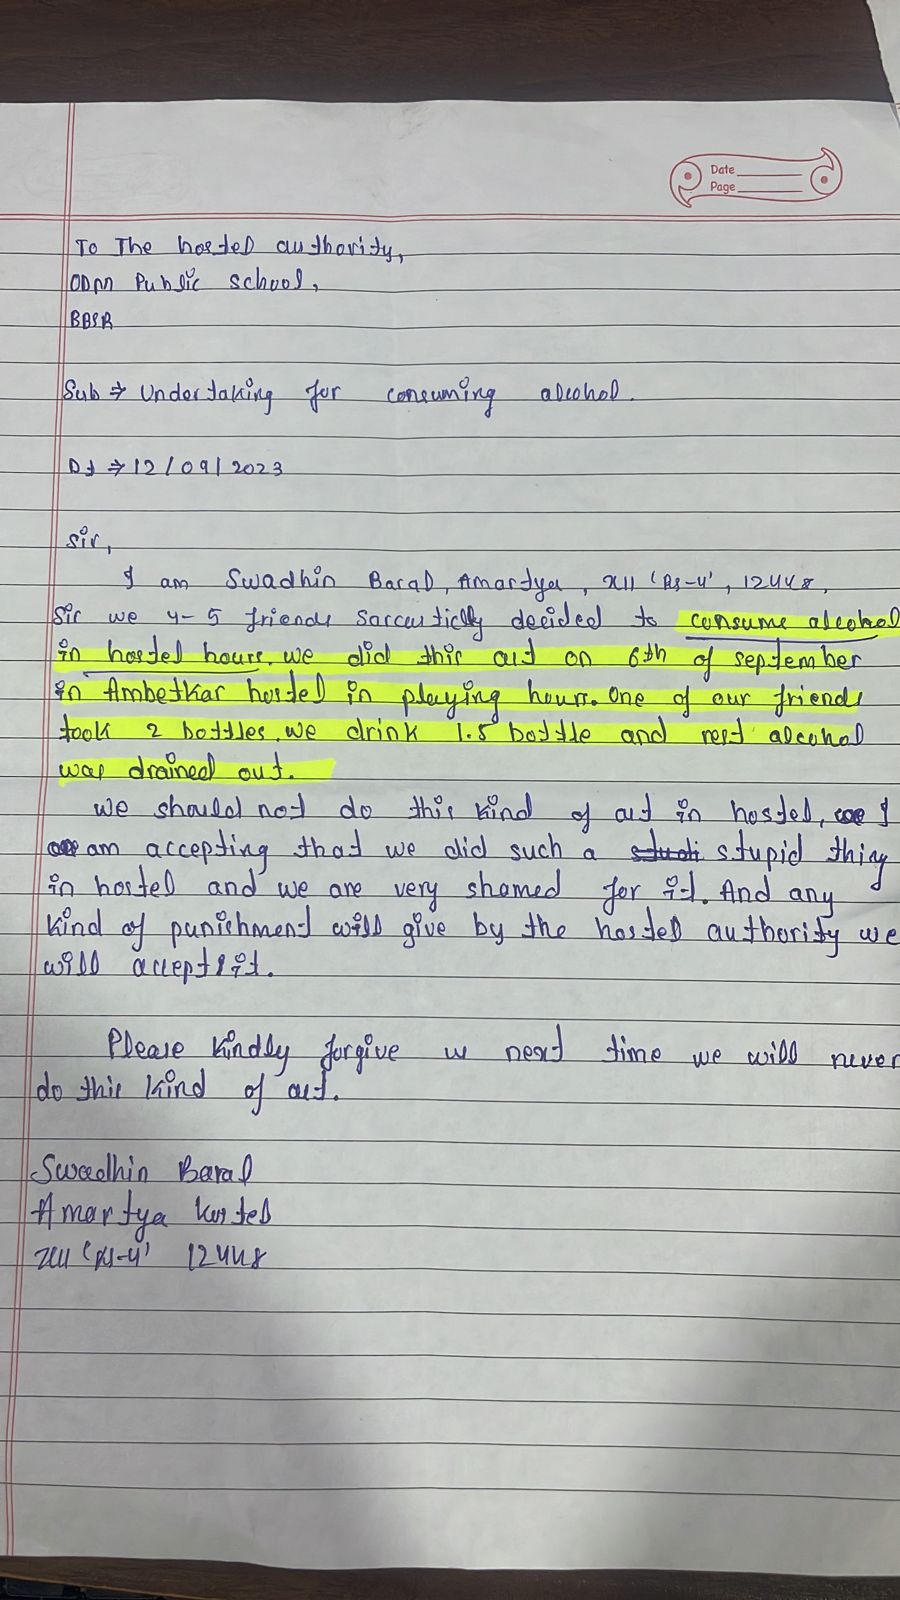 Date
Page
To The hostel authority,
ODM Public school,
BBSR
Sub ⇒ Undertaking for consuming alcohol.
Dt ⇒ 12/09/2023
Sir,
I am Swadhin Baral, Amartya, XII 'As-4', 12448,
Sir we 4-5 friends sarcastically decided to consume alcohol
in hostel hours. we did this act on 6th of september
in Ambetkar hostel in playing hours. One of our friends
took 2 bottles. we drink 1.5 bottle and rest alcohol
was drained out.
we should not do this kind of act in hostel, I
am accepting that we did such a stupid thing
in hostel and we are very shamed for it. And any
kind of punishment will give by the hostel authority we
will accept it.
Please kindly forgive us next time we will never
do this kind of act.
Swadhin Baral
Amartya hostel
XII 'As-4' 12448